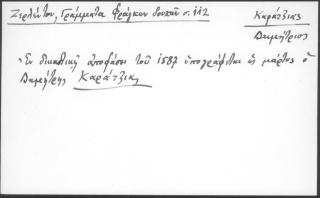 Ζερλέντου, Γράμματα Φράγκων δουκών σ. 112
Καράτζιας
Δημήτριος
Ἐν δικαστικῇ ἀποφάσει τοῦ 1587 ὑπογράφεται ὡς μάρτυς ὁ
Δημήτρης Καράτζιας